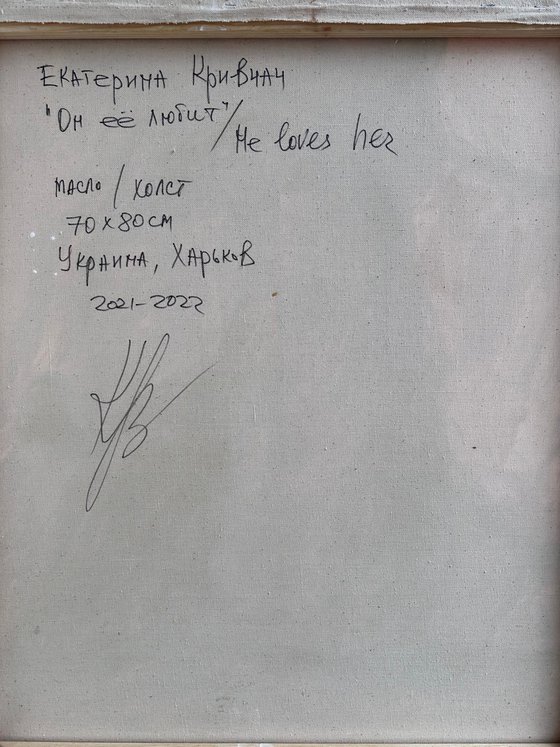 Екатерина Кривчач
"Он её любит"/
He loves her
масло / холст
70 x 80 см
Украина, Харьков
2021-2022